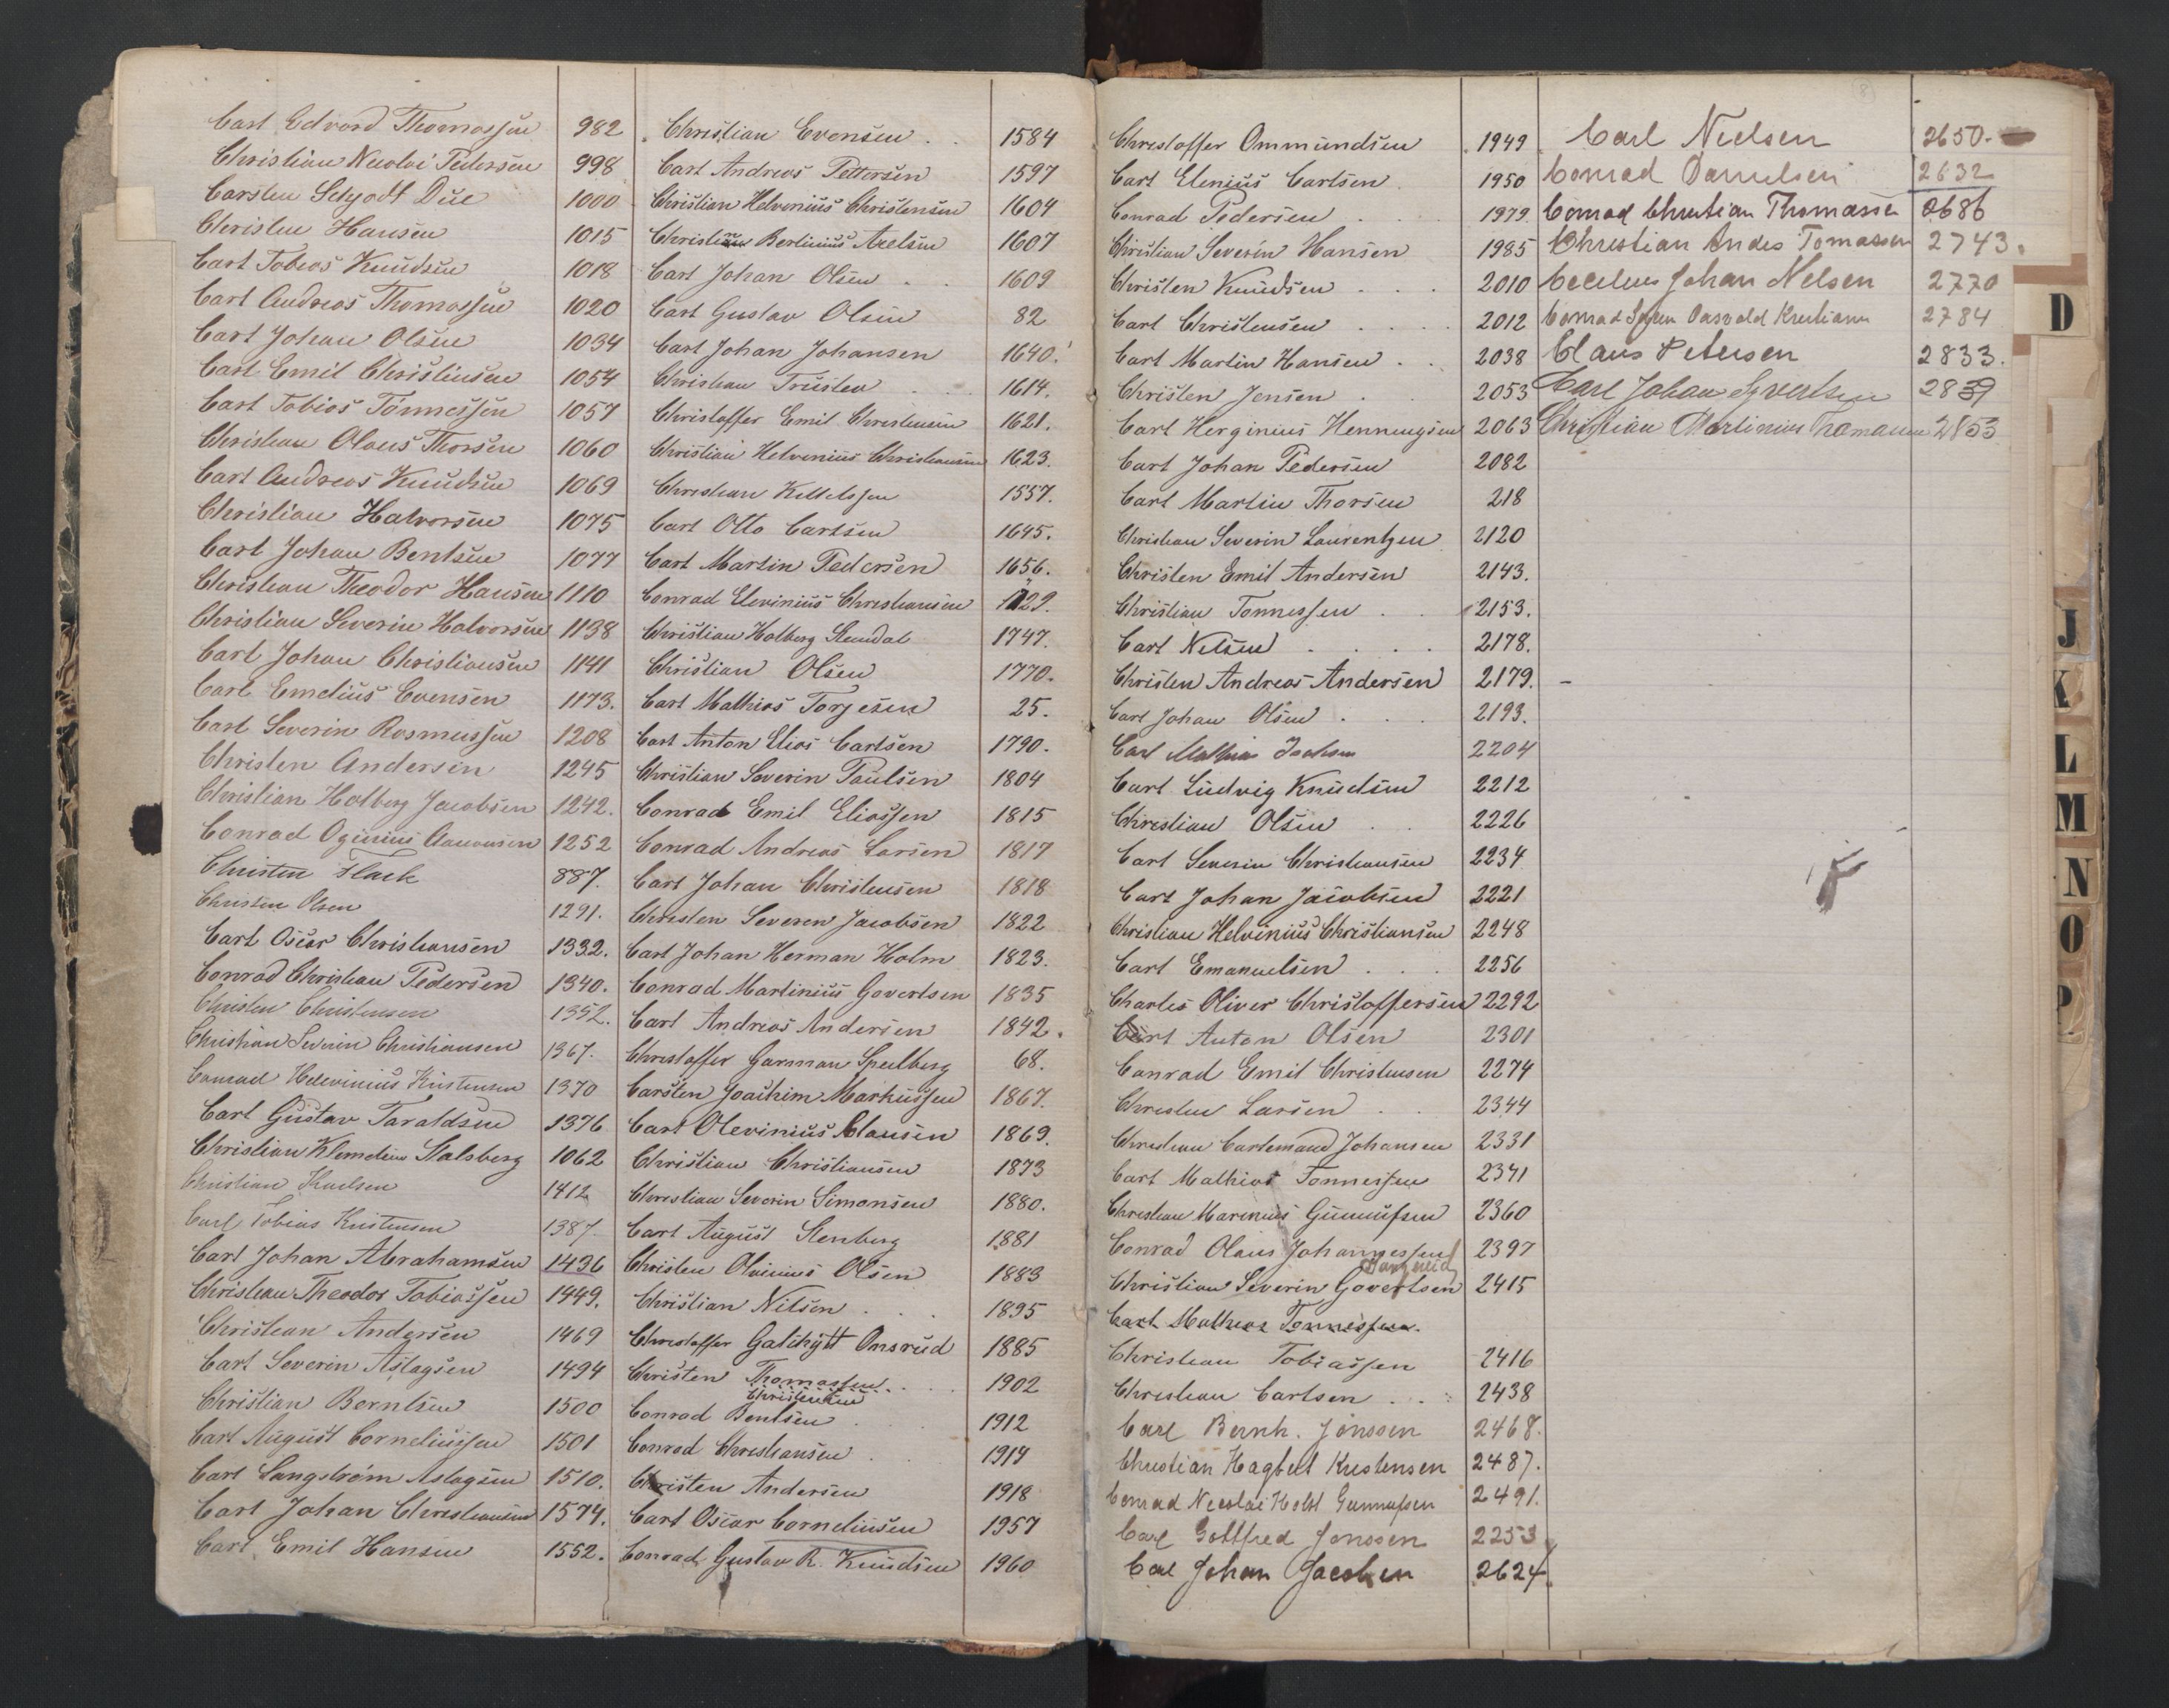 Carl Edvard Thomassen 982
Christian Nicolai Pedersen 998
Carsten Schjødt Due 1000
Christen Hansen 1015
Carl Tobias Knudsen 1018
Carl Andreas Thomassen 1020
Carl Johan Olsen 1034
Carl Emil Christensen 1054
Carl Tobias Tønnessen 1057
Christian Olaus Thorsen 1060
Carl Andreas Knudsen 1069
Christian Halvorsen 1075
Carl Johan Bentsen 1077
Christian Theodor Hansen 1110
Christian Severin Halvorsen 1138
Carl Johan Christiansen 1141
Carl Emelius Evensen 1173.
Carl Severin Rasmussen 1208
Christen Andersen 1245
Christian Holberg Jacobsen 1242.
Conrad Oginius Aanonsen 1252
Christen Flack 887.
Christen Olsen 1291.
Carl Oscar Christiansen 1332.
Conrad Christian Pedersen 1340.
Christen Christensen 1352.
Christian Severin Christiansen 1367.
Conrad Helevinius Kristensen 1370
Carl Gustav Taraldsen 1376
Christian Klemetius Salsberg 1062
Christian Knudsen 1412
Carl Tobias Kristensen 1387.
Carl Johan Abrahamsen 1436
Christian Theodor Tobiassen 1449.
Christian Andersen 1469
Carl Severin Aslagsen 1494
Christian Berntsen 1500
Carl August Corneliussen 1501
Carl Langstrøm Aslagsen 1510.
Carl Johan Christiansen 1574.
Carl Emil Hansen 1552.
Christian Evensen . . 1584
Carl Andreas Pettersen 1597
Christian Helvenius Christensen 1604
Christian Berlinius Axelsen 1607
Carl Johan Olsen . . 1609
Carl Gustav Olsen 82
Carl Johan Johansen 1640.
Christian Truslew . . 1614.
Christoffer Emil Christensen 1621.
Christian Helvenius Christiansen 1623.
Christian Kittelsen 1557.
Carl Otto Carlsen 1645.
Carl Martin Pedersen 1656.
Conrad Elevinius Christiansen 1729.
Christian Holberg Stendal 1747.
Christian Olsen 1770.
Carl Mathias Torjesen 25.
Carl Anton Elias Carlsen 1790.
Christian Severin Paulsen 1804
Conrad Emil Eliassen 1815
Conrad Andreas Larsen 1817
Carl Johan Christensen 1818
Christen Severen Jacobsen 1822
Carl Johan Herman Holm 1823.
Conrad Martinius Govertsen 1835
Carl Andreas Andersen 1842.
Christoffer Garman Speilberg 68.
Carsten Joachim Markussen 1867.
Carl Olevinius Clausen 1869.
Christian Christiansen 1873
Christian Severin Simonsen 1880.
Carl August Stenberg 1881
Christen Olvinius Olsen 1883
Christian Nilsen . . . 1895
Christoffer Galchytt Onsrud 1885
Christen Thomassen . . . 1902
Christensen
Conrad Bentsen . . 1912
Conrad Christiansen . . 1914
Christen Andersen 1918
Carl Oscar Corneliusen 1957
Conrad Gustav R. Knudsen 1960
Christoffer Ommundsen 1949
Carl Elenius Carlsen . 1950
Conrad Pedersen . . . 1979
Christian Severin Hansen 1985
Christen Knudsen . . . 2010
Carl Christensen . . . . 2012
Carl Martin Hansen . . 2038
Christen Jensen . . 2053
Carl Herginius Henningsen 2063
Carl Johan Pedersen 2082
Carl Martin Thorsen 218
Christian Severin Laurentzen 2120
Christen Emil Andersen 2143.
Christian Tønnessen . . 2153.
Carl Nilsen . . . . 2178.
Christen Andreas Andersen 2179. –
Carl Johan Olsen . . . 2193.
Carl Mathias 2204
Carl Ludvig Knudsen 2212
Christian Olsen . . 2226
Carl Severin Christiansen 2234
Carl Johan Jacobsen 2221
Christian Helvinius Christiansen 2248
Carl Emanuelsen . . . 2256
Charles Oliver Christoffersen 2292
Carl Anton Olsen 2301
Conrad Emil Christensen 2274
Christen Larsen . . 2344
Christian Cartemand Johansen 2331
Carl Mathias Tønnessen 2341
Christian Marenius Gunnufsen 2360
Conrad Olaus Johannessen 2397
Christian Severin Govertsen 2415
Carl Mathias Tønnessen.
Christian Tobiassen 2416
Christian Carlsen . . . 2438
Carl Bernh. Jonssen 2468.
Christian Hagbert Kristensen 2487.
Conrad Nicolai Holst Gunnufsen 2491.
Carl Gottfred Jonssen 2253
Carl Johan Jacobsen 2624.
Carl Nielsen 2650.
Conrad Danielsen 2632
Conrad Christian Thomassen 2686
Christian Andes Tomassen 2743.
Cecelius Johan Nelsen 2770
Conrad Søren Oasvald Kristians 2784
Claus Petersen 2833.
Carl Johan Syvertsen 2839
Christian Martinius Thomassen 2853
D
J
K
L
M
N
O
P